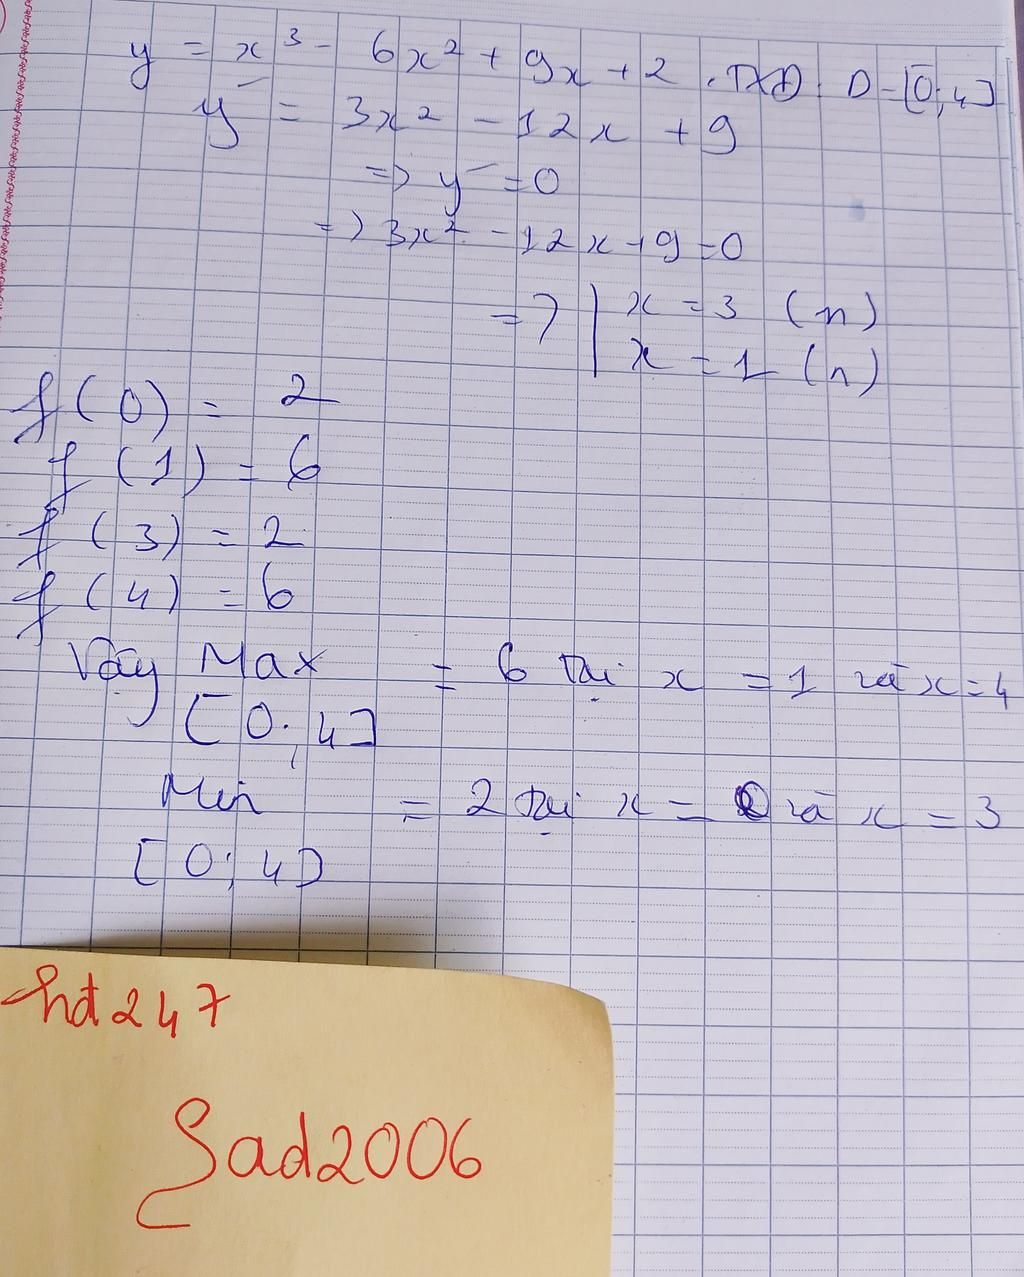 y = x³ - 6x² + 9x + 2 . TXĐ : D = [0; 4]
y' = 3x² - 12x + 9
=> y' = 0
=> 3x² - 12x + 9 = 0
=> | x = 3 (n)
| x = 1 (n)
f(0) = 2
f(1) = 6
f(3) = 2
f(4) = 6
Vậy Max = 6 tại x = 1 và x = 4
[0; 4]
Min = 2 tại x = 0 và x = 3
[0; 4]
hdt247
Sad2006